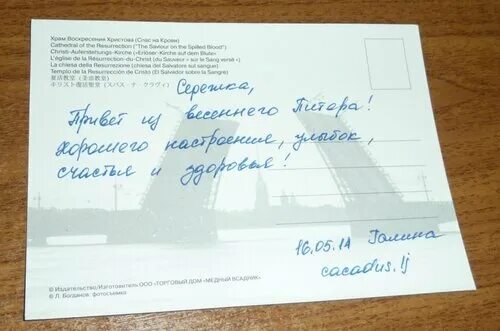 Храм Воскресения Христова (Спас на Крови)
Cathedral of the Resurrection ("The Saviour on the Spilled Blood")
Christi-Auferstehungs-Kirche («Erlöser-Kirche auf dem Blute»)
L'église de la Résurrection-du-Christ (du Sauveur « sur le Sang versé »)
La chiesa della Resurrezione (chiesa del Salvatore sul sangue)
Templo de la Resurrección de Cristo (El Salvador sobre la Sangre)
キリスト復活聖堂 (スパス・ナ・クラヴィ)
Сережка,
Привет из весеннего Питера!
Хорошего настроения, улыбок,
счастья и здоровья!
16.05.14 Галина
cacadus.lj
© Издательство/Изготовитель ООО «ТОРГОВЫЙ ДОМ «МЕДНЫЙ ВСАДНИК»
© Л. Богданов: фотосъемка